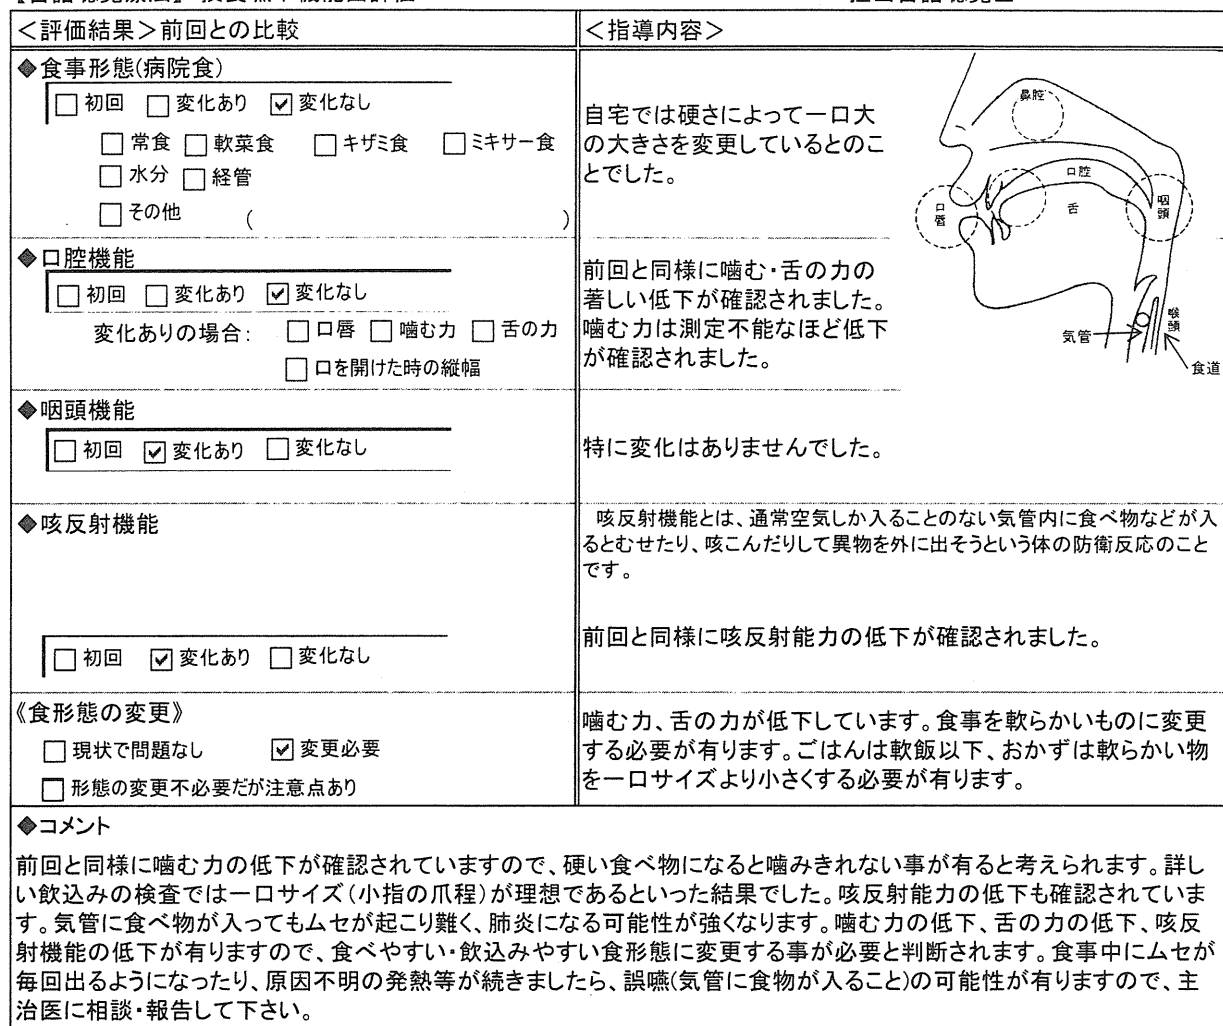 ＜評価結果＞前回との比較
＜指導内容＞
◆食事形態(病院食)
□ 初回 □ 変化あり ☑ 変化なし
□ 常食 □ 軟菜食 □ キザミ食 □ ミキサー食
□ 水分 □ 経管
□ その他 ( )
自宅では硬さによって一口大
の大きさを変更しているとのこ
とでした。
鼻腔
口腔
口唇
舌
咽頭
喉頭
気管
食道
◆口腔機能
□ 初回 □ 変化あり ☑ 変化なし
変化ありの場合: □ 口唇 □ 噛む力 □ 舌の力
□ 口を開けた時の縦幅
前回と同様に噛む・舌の力の
著しい低下が確認されました。
噛む力は測定不能なほど低下
が確認されました。
◆咽頭機能
□ 初回 ☑ 変化あり □ 変化なし
特に変化はありませんでした。
◆咳反射機能
□ 初回 ☑ 変化あり □ 変化なし
咳反射機能とは、通常空気しか入ることのない気管内に食べ物などが入
るとむせたり、咳こんだりして異物を外に出そうという体の防衛反応のこと
です。
前回と同様に咳反射能力の低下が確認されました。
《食形態の変更》
□ 現状で問題なし ☑ 変更必要
□ 形態の変更不必要だが注意点あり
噛む力、舌の力が低下しています。食事を軟らかいものに変更
する必要が有ります。ごはんは軟飯以下、おかずは軟らかい物
を一口サイズより小さくする必要が有ります。
◆コメント
前回と同様に噛む力の低下が確認されていますので、硬い食べ物になると噛みきれない事が有ると考えられます。詳し
い飲込みの検査では一口サイズ(小指の爪程)が理想であるといった結果でした。咳反射能力の低下も確認されていま
す。気管に食べ物が入ってもムセが起こり難く、肺炎になる可能性が強くなります。噛む力の低下、舌の力の低下、咳反
射機能の低下が有りますので、食べやすい・飲込みやすい食形態に変更する事が必要と判断されます。食事中にムセが
毎回出るようになったり、原因不明の発熱等が続きましたら、誤嚥(気管に食物が入ること)の可能性が有りますので、主
治医に相談・報告して下さい。